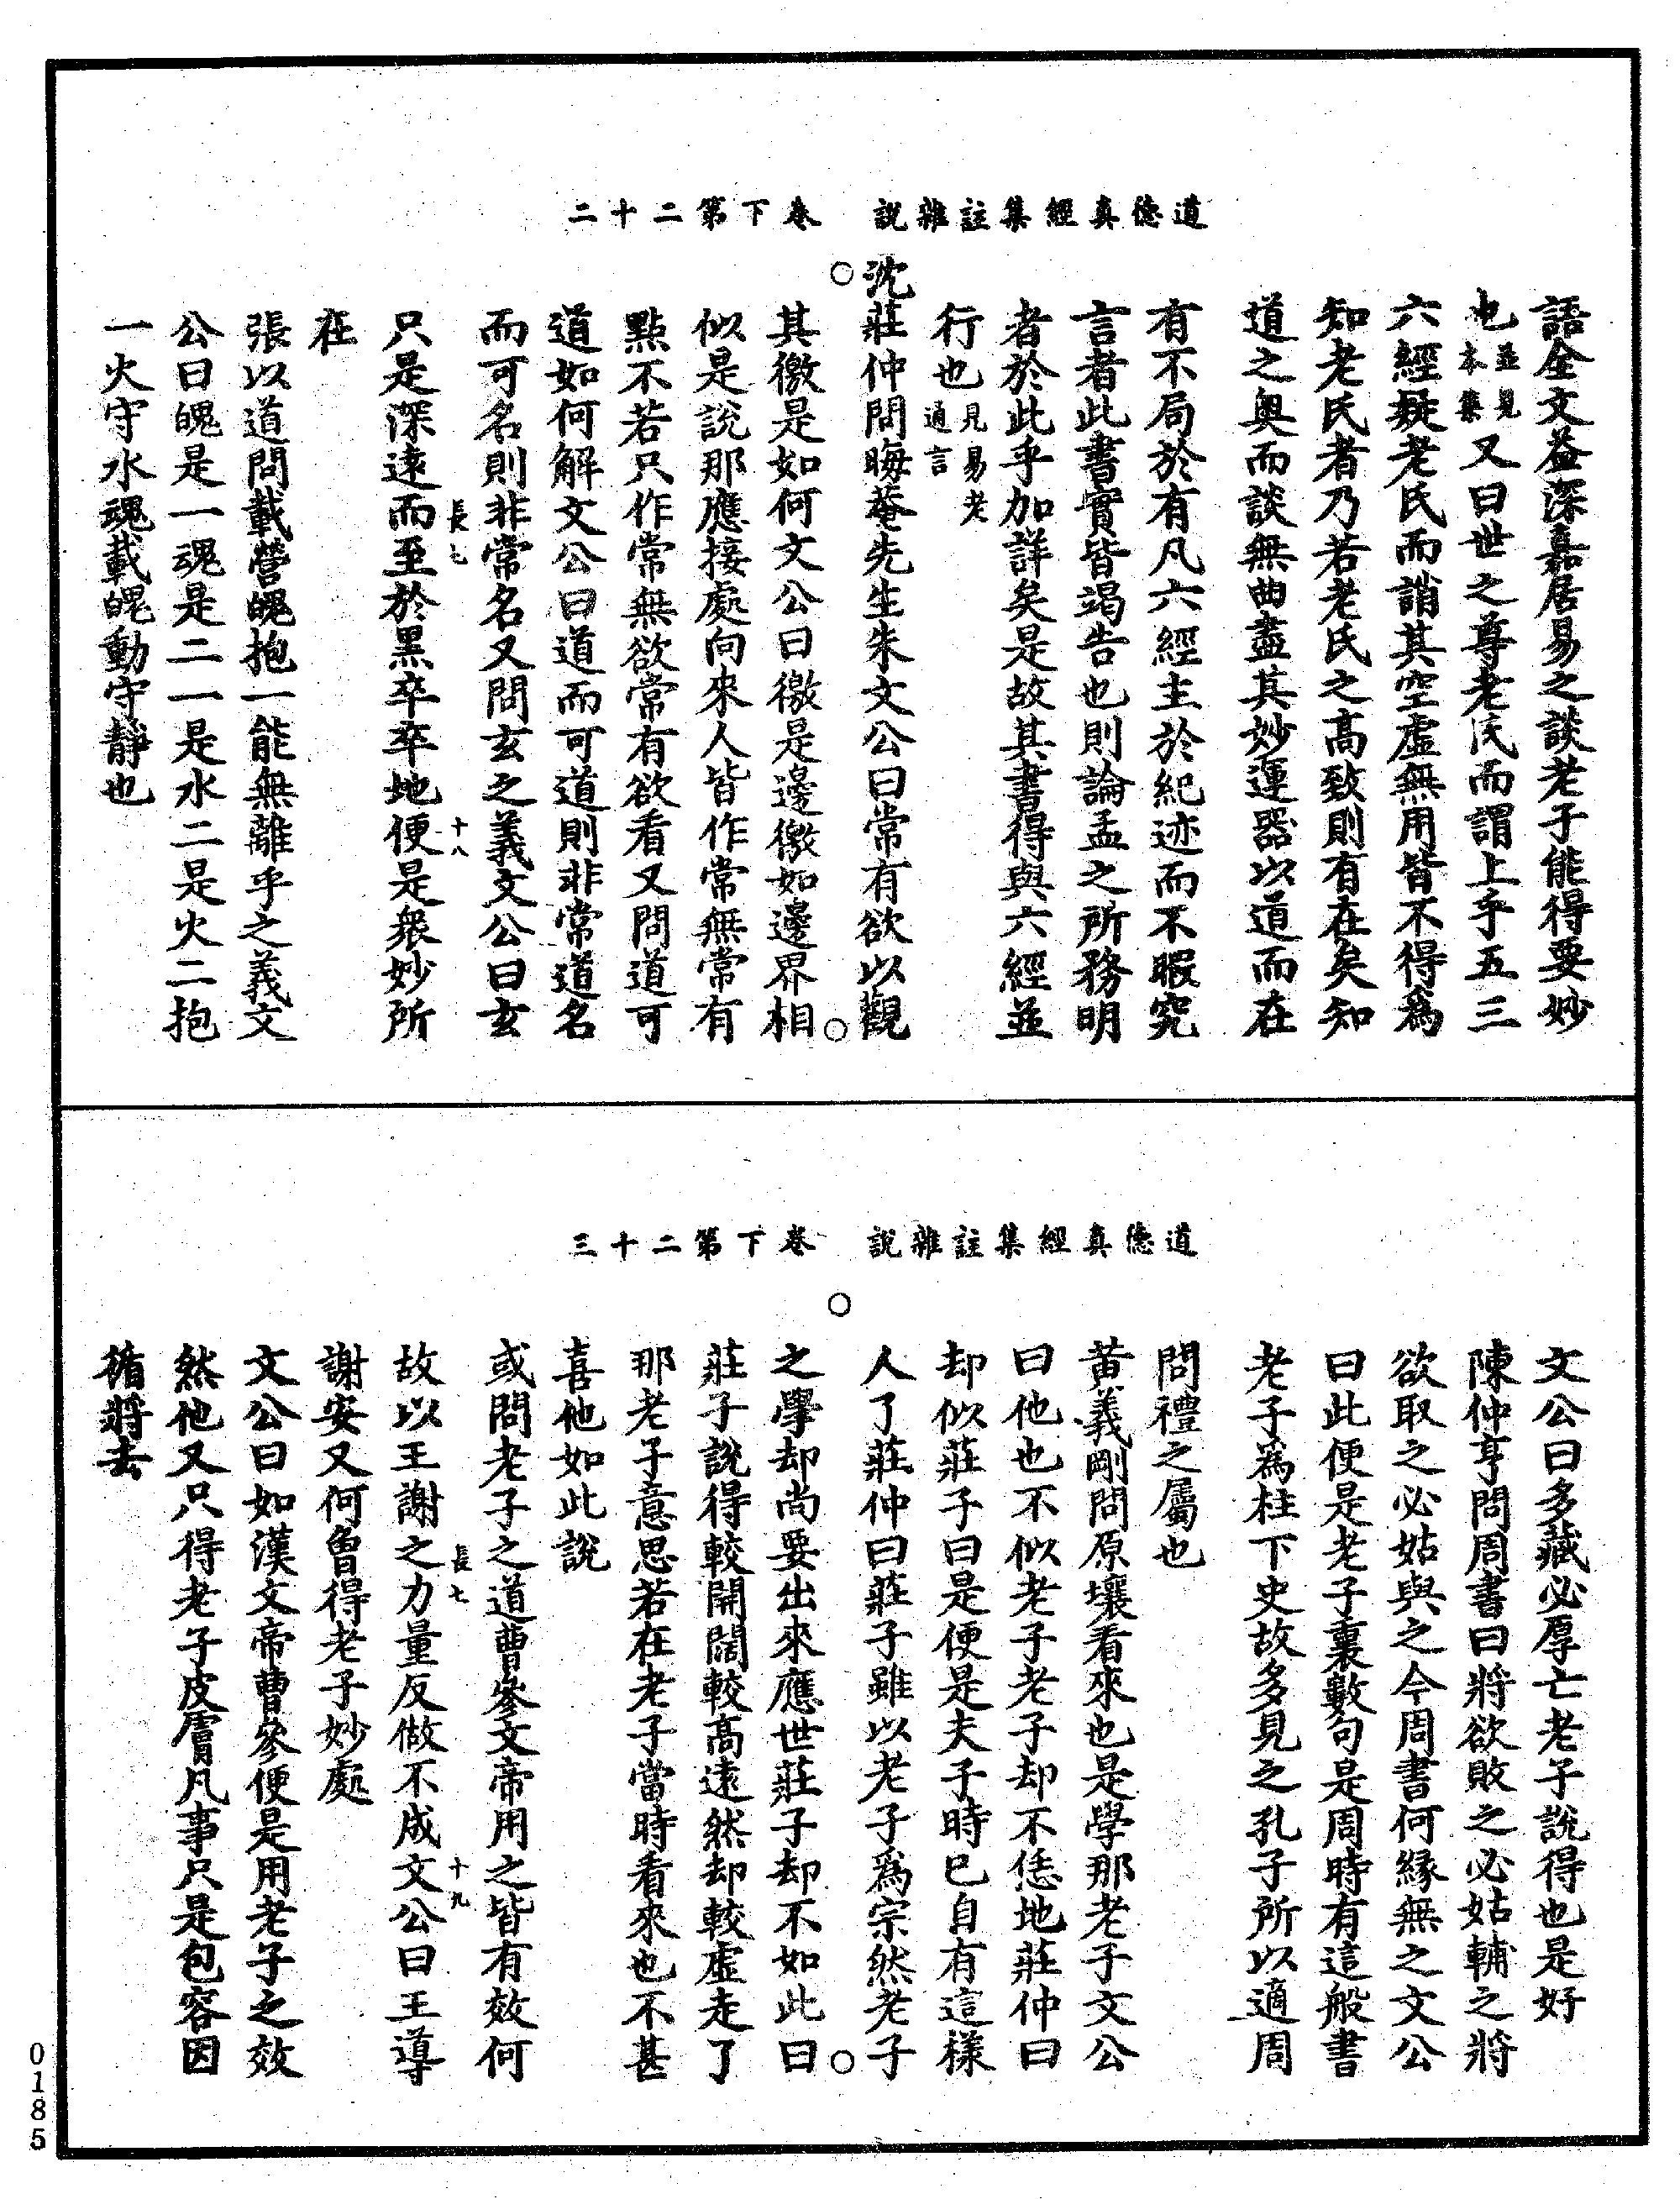 道德真經集註雜說　卷下第二十二
語全文益深嘉居易之談老子能得要妙
也並見本集又曰世之尊老氏而謂上乎五三
六經疑老氏而誚其空虛無用皆不得爲
知老氏者乃若老氏之高致則有在矣知
道之奧而談無曲盡其妙運器以道而在
有不局於有凡六經主於紀迹而不暇究
言者此書實皆竭告也則論孟之所務明
者於此乎加詳矣是故其書得與六經並
行也見易老通言
沈莊仲問晦菴先生朱文公曰常有欲以觀
其徼是如何文公曰徼是邊徼如邊界相
似是說那應接處向來人皆作常無常有
點不若只作常無欲常有欲看又問道可
道如何解文公曰道而可道則非常道名
而可名則非常名又問玄之義文公曰玄
只是深遠而至於黑卒卒地便是衆妙所
在
長七　十八
張以道問載營魄抱一能無離乎之義文
公曰魄是一魂是二一是水二是火二抱
一火守水魂載魄動守靜也
道德真經集註雜說　卷下第二十三
文公曰多藏必厚亡老子說得也是好
陳仲亨問周書曰將欲敗之必姑輔之將
欲取之必姑與之今周書何緣無之文公
曰此便是老子裏數句是周時有這般書
老子爲柱下史故多見之孔子所以適周
問禮之屬也
黃義剛問原壤看來也是學那老子文公
曰他也不似老子老子却不恁地莊仲曰
却似莊子曰是便是夫子時已自有這樣
人了莊仲曰莊子雖以老子爲宗然老子
之學却尚要出來應世莊子却不如此曰
莊子說得較開闊較高遠然却較虛走了
那老子意思若在老子當時看來也不甚
喜他如此說
或問老子之道曹參文帝用之皆有效何
故以王謝之力量反做不成文公曰王導
謝安又何曾得老子妙處
長七　十九
文公曰如漢文帝曹參便是用老子之效
然他又只得老子皮膚凡事只是包容因
循將去
0185